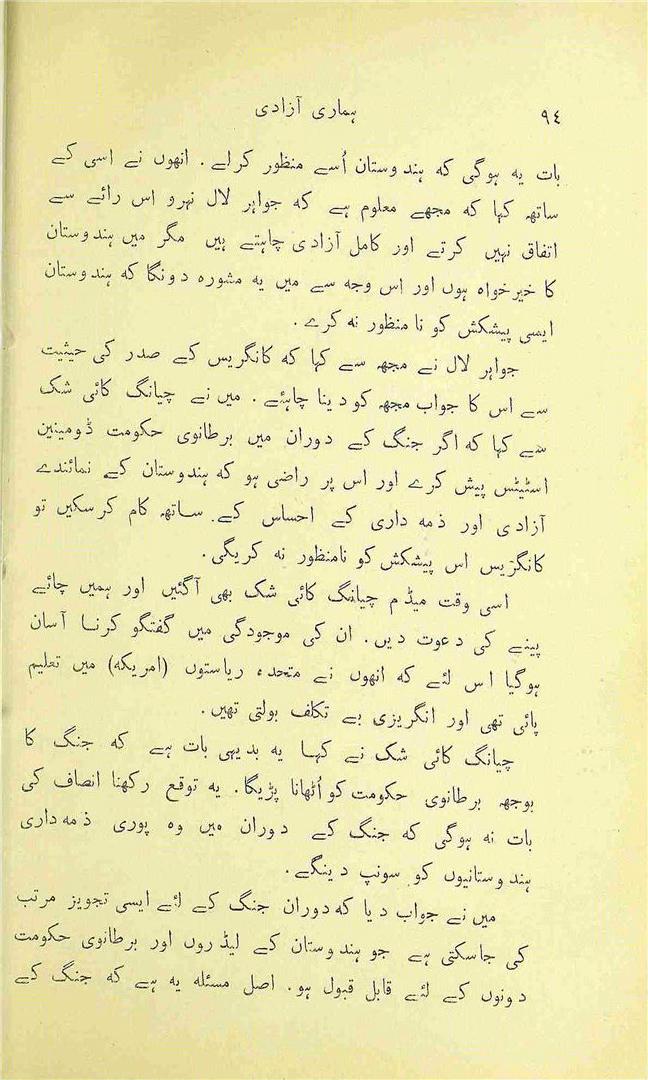 ۹٤
ہماری آزادی
بات یہ ہوگی کہ ہندوستان اُسے منظور کرلے ۔ انھوں نے اسی کے
ساتھ کہا کہ مجھے معلوم ہے کہ جواہر لال نہرو اس رائے سے
اتفاق نہیں کرتے اور کامل آزادی چاہتے ہیں مگر میں ہندوستان
کا خیرخواہ ہوں اور اس وجہ سے میں یہ مشورہ دونگا کہ ہندوستان
ایسی پیشکش کو نا منظور نہ کرے ۔
جواہر لال نے مجھ سے کہا کہ کانگریس کے صدر کی حیثیت
سے اس کا جواب مجھ کو دینا چاہئے ۔ میں نے چیانگ کائی شک
سے کہا کہ اگر جنگ کے دوران میں برطانوی حکومت ڈومینین
اسٹیٹس پیش کرے اور اس پر راضی ہو کہ ہندوستان کے نمائندے
آزادی اور ذمہ داری کے احساس کے ساتھ کام کرسکیں تو
کانگریس اس پیشکش کو نامنظور نہ کریگی ۔
اسی وقت میڈم چیانگ کائی شک بھی آگئیں اور ہمیں چائے
پینے کی دعوت دیں ۔ ان کی موجودگی میں گفتگو کرنا آسان
ہوگیا اس لئے کہ انھوں نے متحدہ ریاستوں (امریکہ) میں تعلیم
پائی تھی اور انگریزی بے تکلف بولتی تھیں ۔
چیانگ کائی شک نے کہا یہ بدیہی بات ہے کہ جنگ کا
بوجھ برطانوی حکومت کو اُٹھانا پڑیگا ۔ یہ توقع رکھنا انصاف کی
بات نہ ہوگی کہ جنگ کے دوران میں وہ پوری ذمہ داری
ہندوستانیوں کو سونپ دینگے ۔
میں نے جواب دیا کہ دوران جنگ کے لئے ایسی تجویز مرتب
کی جاسکتی ہے جو ہندوستان کے لیڈروں اور برطانوی حکومت
دونوں کے لئے قابل قبول ہو ۔ اصل مسئلہ یہ ہے کہ جنگ کے